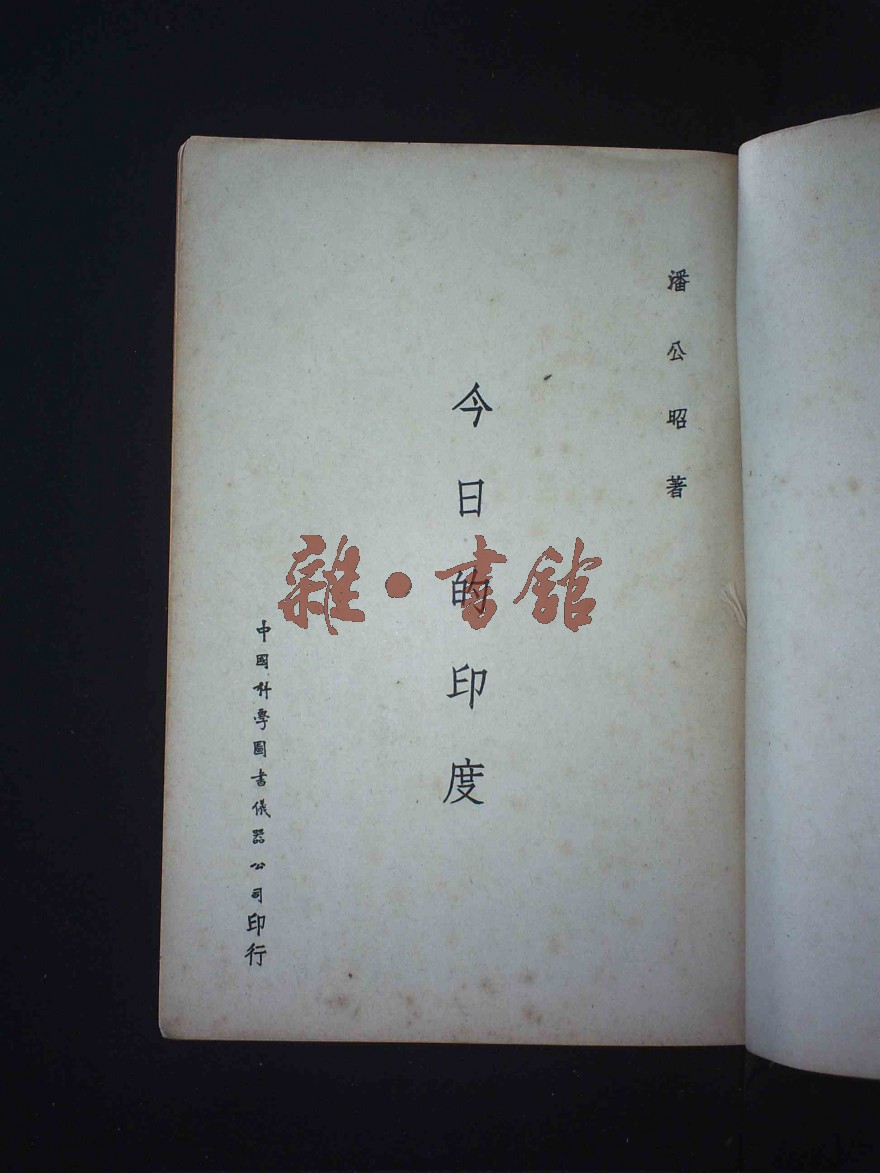 潘公昭著
今日的印度
中國科學圖書儀器公司印行
雜·書館